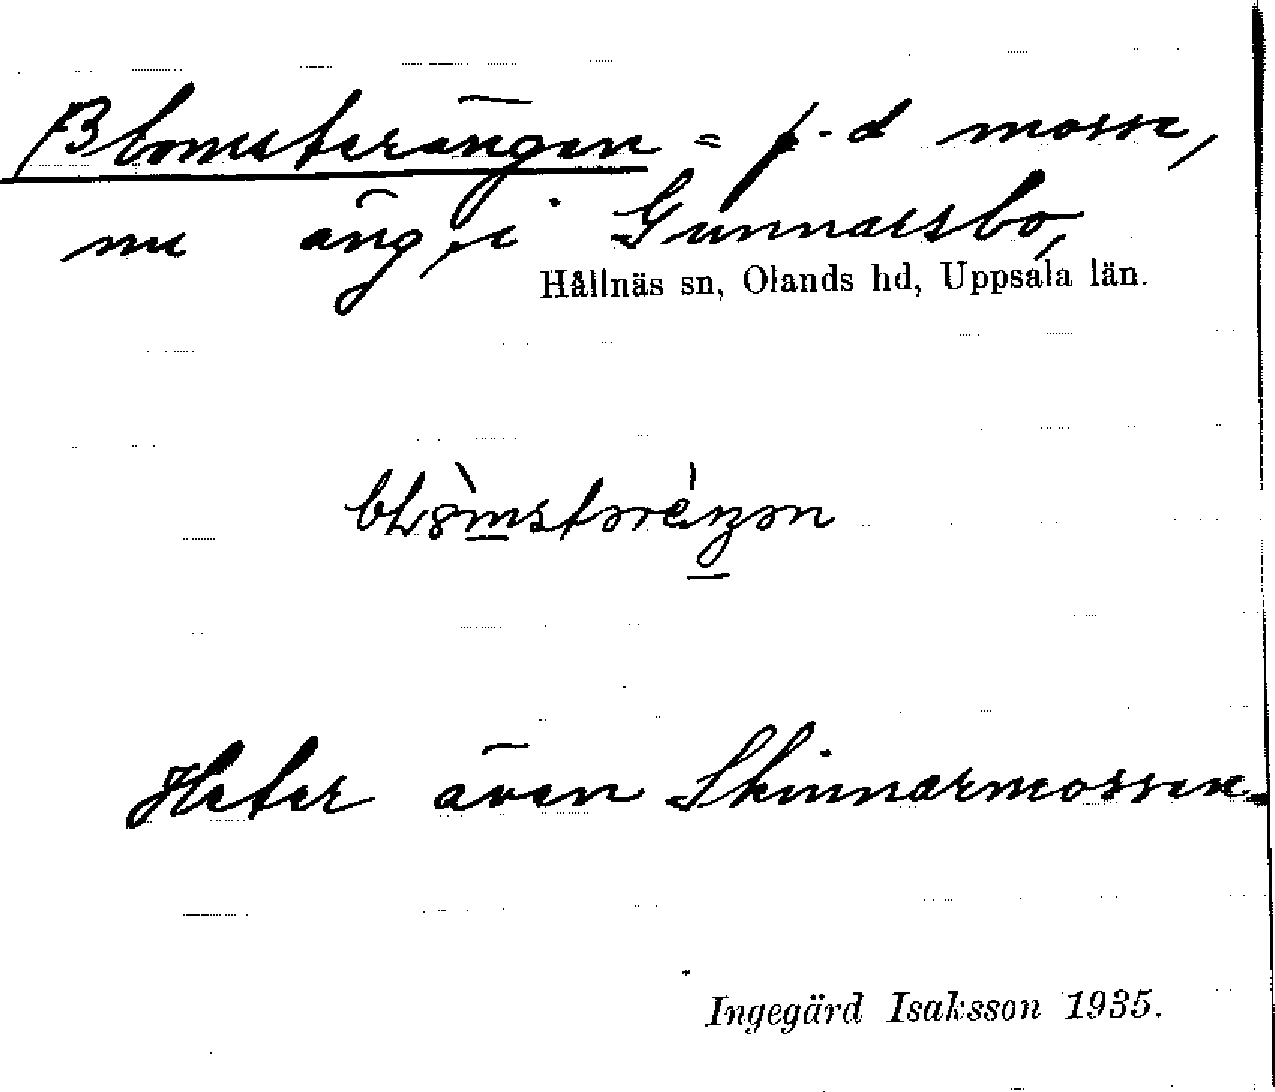 Blomsterängen = f.d mosse,
nu äng, i Gunnarsbo,
Hållnäs sn, Olands hd, Uppsala län.
Heter även Skinnarmossen.
Ingegärd Isaksson 1935.